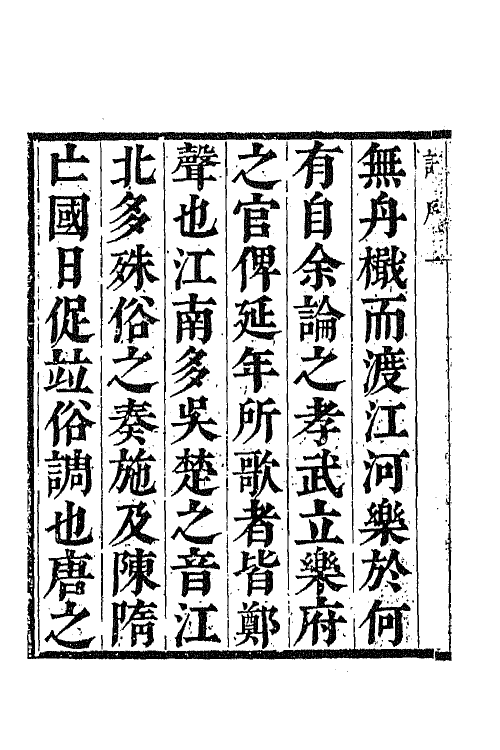 無舟檝而渡江河樂於何
有自余論之孝武立樂府
之官俾延年所歌者皆鄭
聲也江南多吳楚之音江
北多殊俗之奏施及陳隋
亡國日促竝俗調也唐之